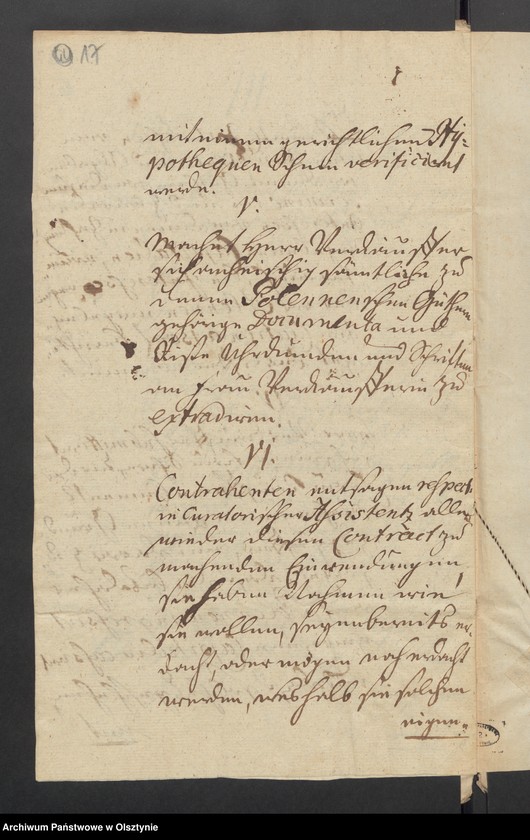 17
mit einem gerichtlichen Hy-
pothequen Schein verificiret
werde.
V.
Machet Herr Verkäuffer
sich anheischig sämtliche zu
denen Polennenschen Güthern
gehörige Documenta und
Riße Uhrkunden und Schrifften
an Frau Verkäufferin zu
extradiren.
VI.
Contrahenten entsagen respect:
in Curatorischer Assistentz allen
wieder diesen Contract zu
machenden Einwendungen,
sie haben Nahmen wie
sie wollen, seyen bereits er-
dacht, oder mögen noch erdacht
werden, weshalb sie solchen
eigen-
Archiwum Państwowe w Olsztynie